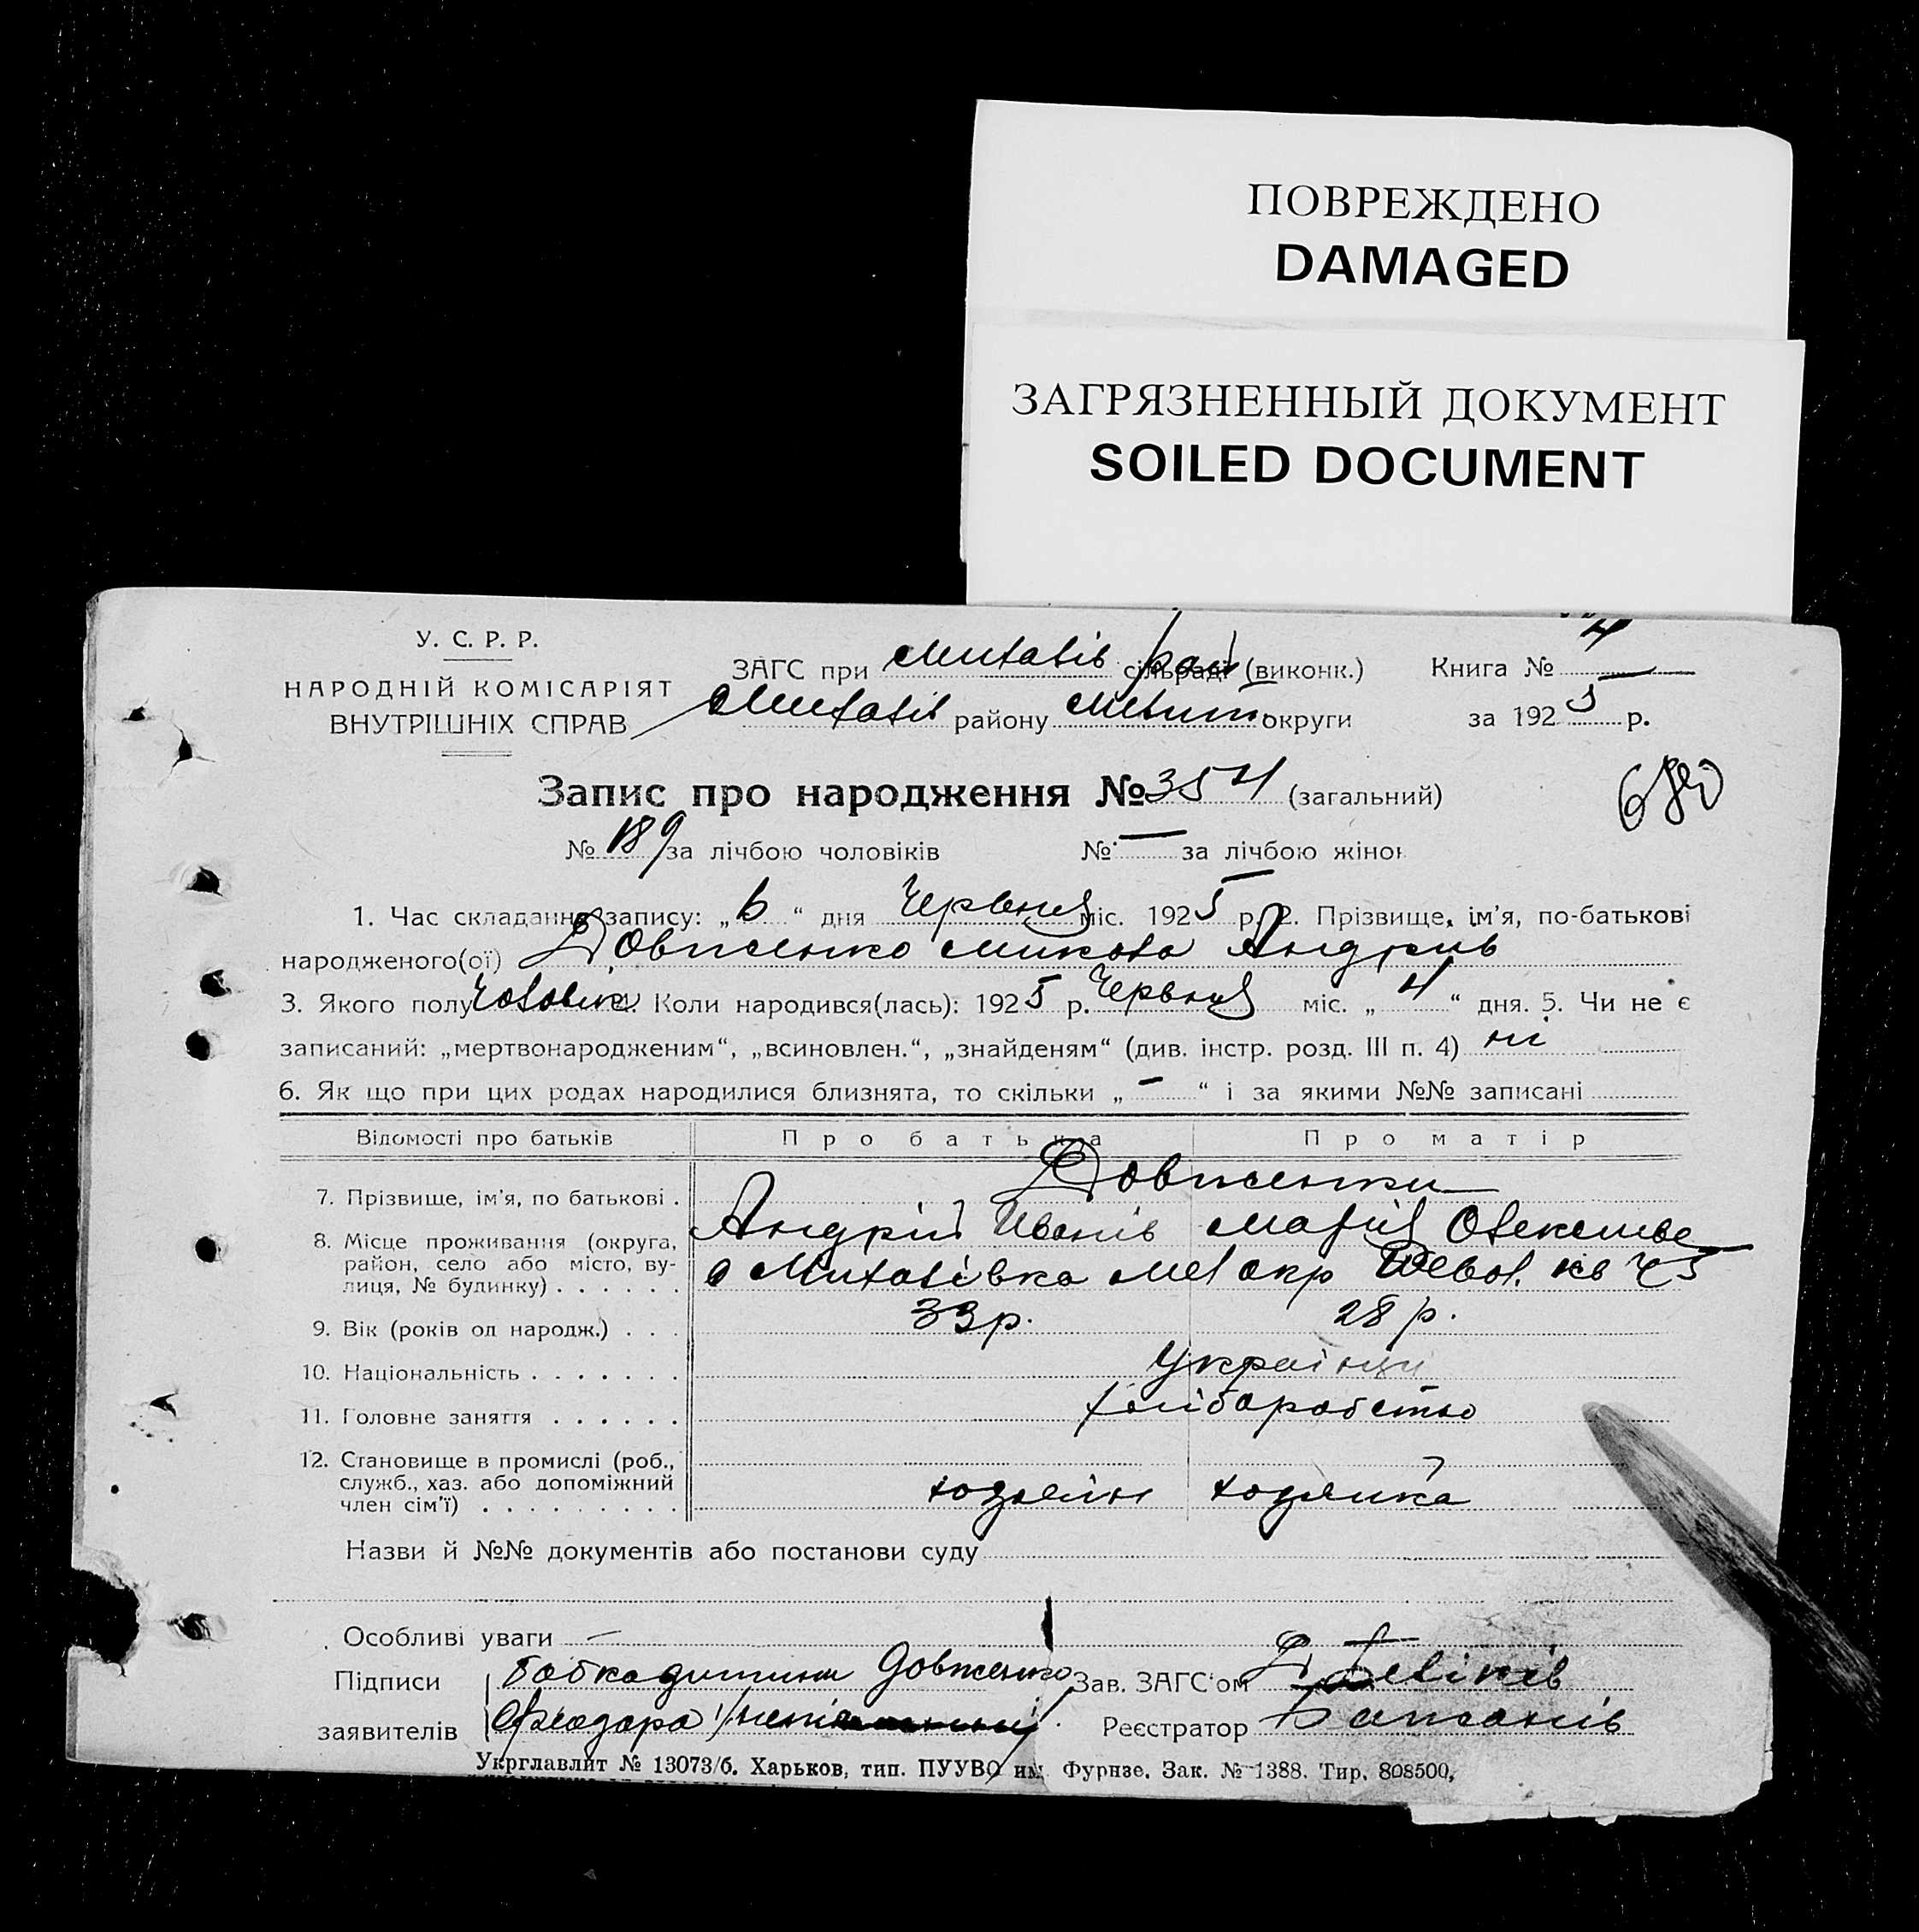 ПОВРЕЖДЕНО
DAMAGED
ЗАГРЯЗНЕННЫЙ ДОКУМЕНТ
SOILED DOCUMENT
У. С. Р. Р.
НАРОДНІЙ КОМІСАРІЯТ
ВНУТРІШНІХ СПРАВ
ЗАГС при Михайлів сільраді рай (виконк.)
Михайлів району Меліт округи
Книга № 4
за 1925 р.
Запис про народження № 354 (загальний)
680
№ 189 за лічбою чоловіків № — за лічбою жінок
1. Час складання запису: „6“ дня Червня міс. 1925 р. 2. Прізвище, ім’я, по-батькові
народженого(ої) Довженко Микола Андріїв
3. Якого полу Чоловік 4. Коли народився(лась): 1925 р. Червня міс. „4“ дня. 5. Чи не є
записаний: „мертвонародженим“, „всиновлен.“, „знайденям“ (див. інстр. розд. III п. 4) ні
6. Як що при цих родах народилися близнята, то скільки „—“ і за якими №№ записані
Відомості про батьків Про батька Про матір
7. Прізвище, ім’я, по батькові . Довженки
Андрій Іванів Марія Олексіїве
8. Місце проживання (округа, район, село або місто, вулиця, № будинку) . . . . . . с Михайлівка Мел окр кв 45
9. Вік (років од народж.) . . . 33 р. 28 р.
10. Національність . . . . . . . Українці
11. Головне заняття . . . . . . хліборобство
12. Становище в промислі (роб., служб., хаз. або допоміжний член сім’ї) . . . . . . . . . хозяїн хозяйка
Назви й №№ документів або постанови суду
Особливі уваги —
Підписи заявителів Бабка дитини Довженко
Феодора
Зав. ЗАГС’ом
Реєстратор
Укрглавлит № 13073/б. Харьков, тип. ПУУВО им. Фурнзе. Зак. № 1388. Тир. 808500,